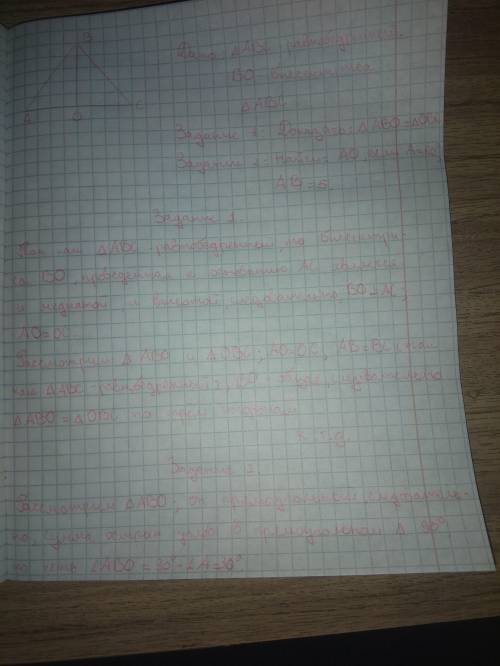 B
Дано: △ABC равнобедренный
BO биссектриса
△ABC
A O C
Задание 1: Доказать: △ABO=△OBC
Задание 2: Найти: AO, если
AB=5
Задание 1.
Так как △ABC равнобедренный, то биссектри-
са BO, проведенная к основанию AC является
и медианой и высотой, следовательно, BO⊥AC,
AO=OC
Рассмотрим △ABO и △OBC; AO=OC, AB=BC (так
как △ABC-равнобедренный), BO - общая, следовательно
△ABO=△OBC по трем сторонам
ч.т.д.
Задание 2.
Рассмотрим △ABO; он прямоугольный, следователь-
но, сумма острых углов в прямоугольном △ 90°,
то есть ∠ABO = 90°-∠A=30°